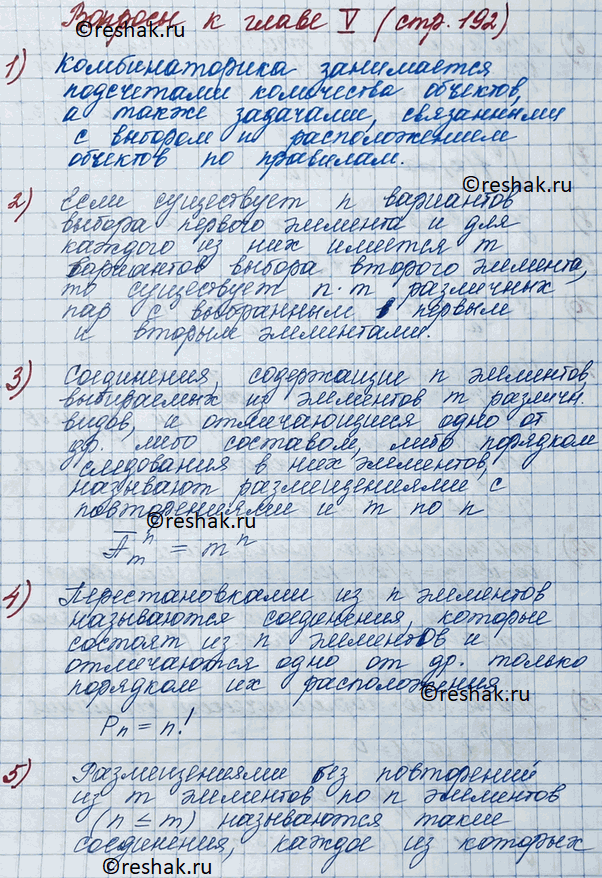 Вопросы к главе V (стр. 192)
©reshak.ru
1) Комбинаторика занимается
подсчетами количества объектов,
а также задачами, связанными
с выбором и расположением
объектов по правилам.
©reshak.ru
2) Если существует n вариантов
выбора первого элемента и для
каждого из них имеется m
вариантов выбора второго элемента,
то существует n·m различных
пар с выбранным первым
и вторым элементами.
©reshak.ru
3) Соединения, содержащие n элементов,
выбираемых из элементов m различн.
видов, и отличающиеся одно от
др. либо составом, либо порядком
следования в них элементов,
называют размещениями с
повторениями и m по n
©reshak.ru
Ā_m^n = m^n
4) Перестановками из n элементов
называются соединения, которые
состоят из n элементов и
отличаются одно от др. только
порядком их расположения
©reshak.ru
P_n = n!
5) Размещениями без повторений
из m элементов по n элементов
(n ≤ m) называются такие
соединения, каждое из которых
©reshak.ru